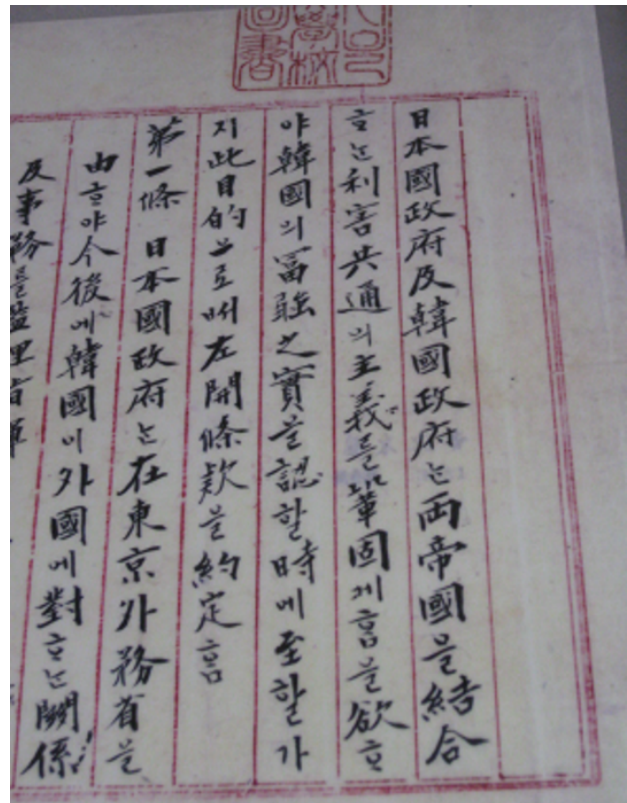 日本國政府及韓國政府는両帝國을結合
ᄒᆞ는利害共通의主義를鞏固케ᄒᆞᆷ을欲ᄒᆞ
야韓國의冨强之實을認할時에至할가
지此目的으로ᄡᅥ左開條欵을約定ᄒᆞᆷ
第一條 日本國政府는在東京外務省을
由ᄒᆞ야今後에韓國이外國에對ᄒᆞ는關係
及事務를監理指揮